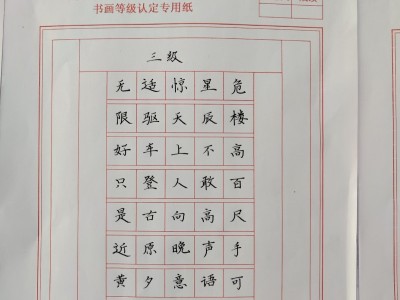 书画等级认定专用纸
三级
危楼高百尺手可
星辰不敢高声语
惊天上人向晚意
适驱车登古原夕
无限好只是近黄